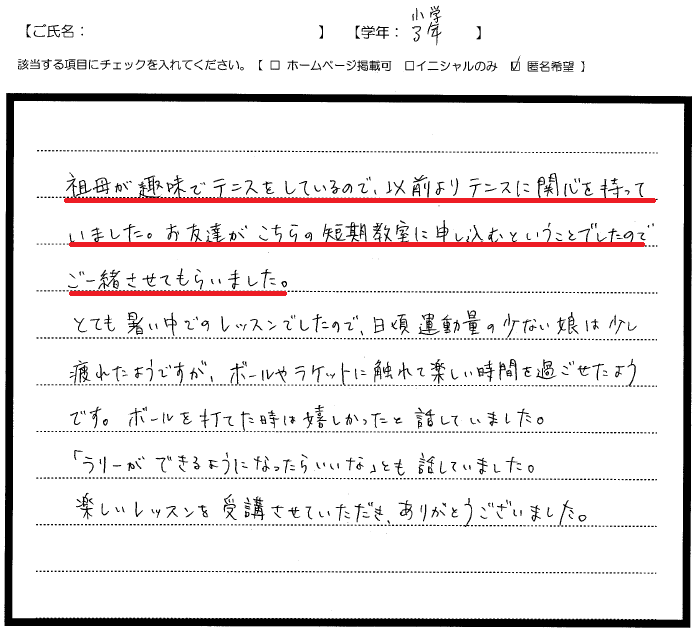 【ご氏名： 】 【学年： 小学3年 】
該当する項目にチェックを入れてください。【 □ ホームページ掲載可 □イニシャルのみ ☑ 匿名希望 】
祖母が趣味でテニスをしているので、以前よりテニスに関心を持って
いました。お友達がこちらの短期教室に申し込むということでしたので
ご一緒させてもらいました。
とても暑い中でのレッスンでしたので、日頃運動量の少ない娘は少し
疲れたようですが、ボールやラケットに触れて楽しい時間を過ごせたよう
です。ボールを打てた時は嬉しかったと話していました。
「ラリーができるようになったらいいな」とも話していました。
楽しいレッスンを受講させていただき、ありがとうございました。